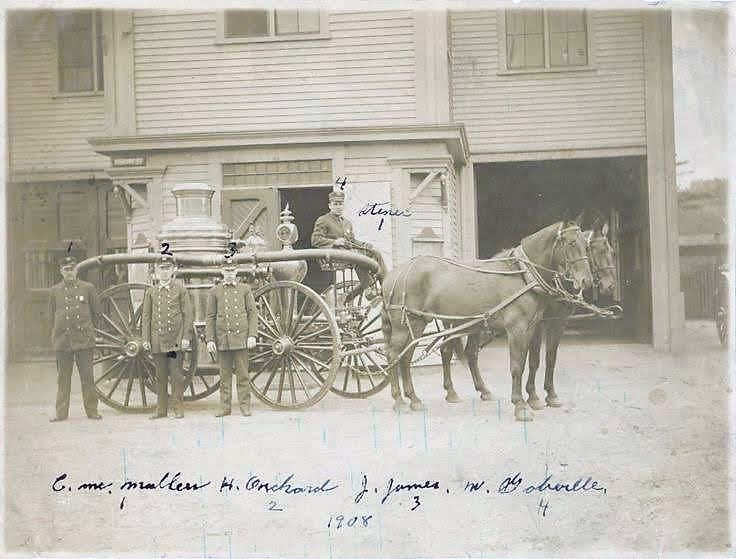 1 2 3 4
Steamer 1
C. Mc. Mullen H. Orchard J. James. W.
1 2 3 4
1908